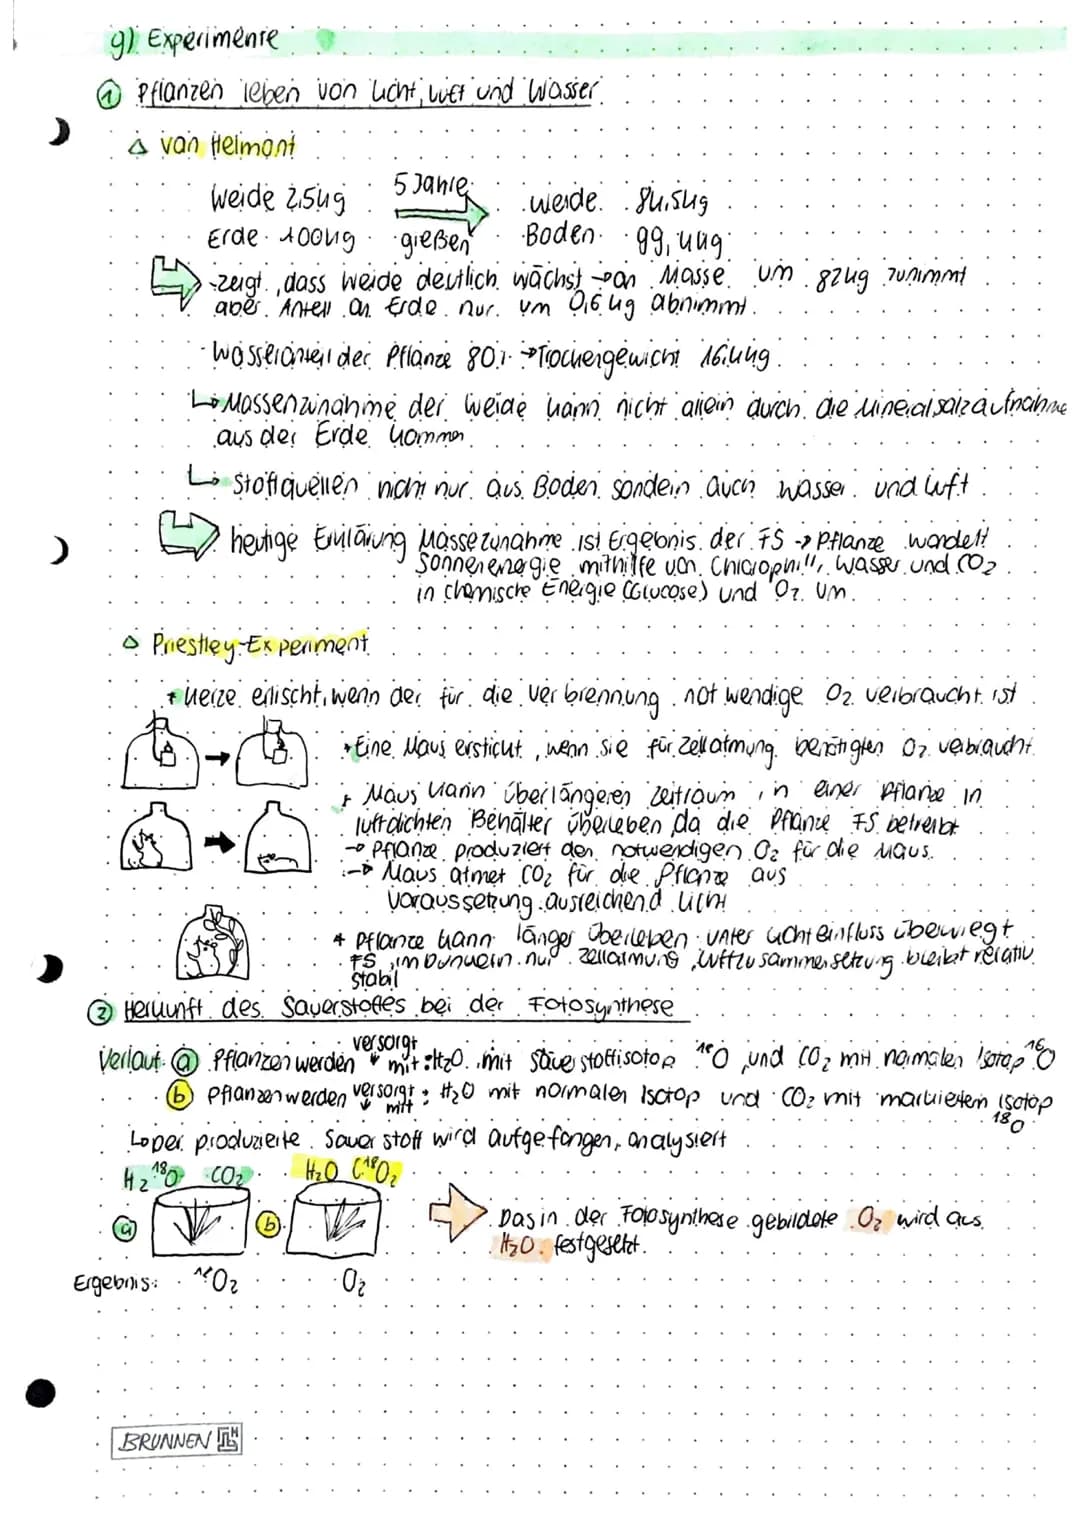 g) Experimente
① Pflanzen leben von Licht, Luft und Wasser
△ van Helmont
Weide 2,5kg 5 Jahre weide 84,5kg
Erde 100kg gießen Boden 99,4kg
-zeigt, dass Weide deutlich wächst → an Masse um 82kg zunimmt
aber Anteil an Erde nur um 0,6kg abnimmt.
- Wasseranteil der Pflanze 80% → Trockengewicht 16,4kg
↳ Massenzunahme der Weide kann nicht allein durch die Mineralsalzaufnahme
aus der Erde kommen
↳ Stoffquellen nicht nur aus Boden sondern auch wasser und Luft
heutige Erklärung Massezunahme ist Ergebnis der FS → Pflanze wandelt
Sonnenenergie mithilfe von Chlorophyll, Wasser und CO2
in chemische Energie (Glucose) und O2 um.
△ Priestley-Experiment
* Kerze erlischt, wenn der für die Verbrennung notwendige O2 verbraucht ist
* Eine Maus erstickt, wenn sie für Zellatmung benötigten O2 verbraucht
* Maus kann über längeren Zeitraum in einer Pflanze in
luftdichten Behälter überleben da die Pflanze FS betreibt
→ Pflanze produziert den notwendigen O2 für die Maus.
→ Maus atmet CO2 für die Pflanze aus
Voraussetzung ausreichend Licht
* Pflanze kann länger überleben unter Lichteinfluss überwiegt
FS, im Dunkeln nur Zellatmung, Luftzusammensetzung bleibt relativ
stabil
② Herkunft des Sauerstoffes bei der Fotosynthese
versorgt
Verlauf: ⓐ Pflanzen werden ↓ mit: H2O mit Sauerstoffisotop ¹⁸O und CO2 mit normalen Isotop ¹⁶O
ⓑ Pflanzen werden versorgt mit: H2O mit normalen Isotop und CO2 mit markiertem Isotop
¹⁸O
↳ der produzierte Sauerstoff wird aufgefangen, analysiert
H2¹⁸O CO2 H2O C¹⁸O2
ⓐ ⓑ Das in der Fotosynthese gebildete O2 wird aus
H2O festgesetzt.
Ergebnis: ¹⁸O2 O2
BRUNNEN